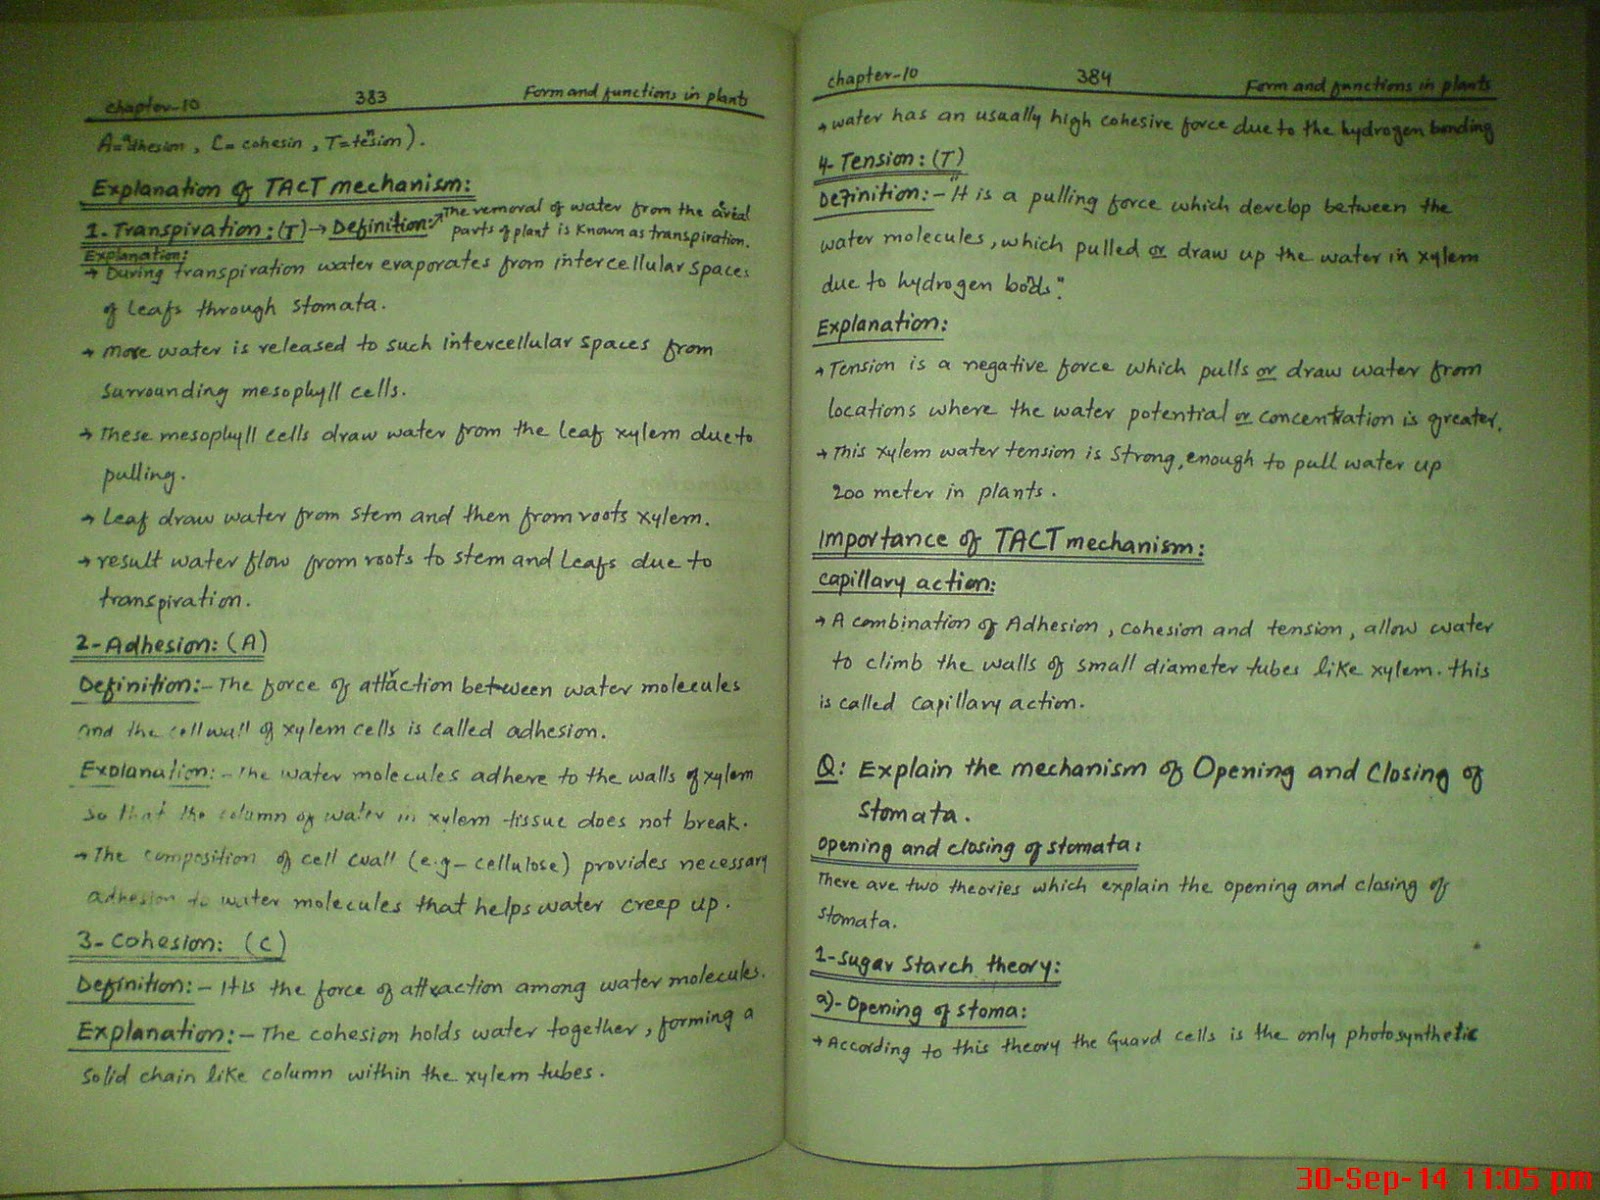 chapter-10 383 Form and functions in plants
A=adhesion, C= cohesin, T=tension).
Explanation of TACT mechanism:
1-Transpiration: (T) → Definition: → The removal of water from the areial
parts of plant is known as transpiration.
Explanation:
→ During transpiration water evaporates from intercellular spaces
of leafs through stomata.
→ More water is released to such intercellular spaces from
surrounding mesophyll cells.
→ These mesophyll cells draw water from the leaf xylem due to
pulling.
→ Leaf draw water from stem and then from roots xylem.
→ result water flow from roots to stem and leafs due to
transpiration.
2-Adhesion: (A)
Definition:- The force of attraction between water molecules
and the cell wall of xylem cells is called adhesion.
Explanation:- The water molecules adhere to the walls of xylem
so that the column of water in xylem tissue does not break.
→ The composition of cell wall (e.g- cellulose) provides necessary
adhesion to water molecules that helps water creep up.
3- Cohesion: (C)
Definition:- It is the force of attraction among water molecules.
Explanation:- The cohesion holds water together, forming a
solid chain like column within the xylem tubes.
chapter-10 384 Form and functions in plants
→ water has an usually high cohesive force due to the hydrogen bonding
4- Tension: (T)
Definition:- "It is a pulling force which develop between the
water molecules, which pulled or draw up the water in xylem
due to hydrogen bonds".
Explanation:
→ Tension is a negative force which pulls or draw water from
locations where the water potential or concentration is greater.
→ This xylem water tension is strong, enough to pull water up
200 meter in plants.
Importance of TACT mechanism:
capillary action:
→ A combination of Adhesion, cohesion and tension, allow water
to climb the walls of small diameter tubes like xylem. this
is called capillary action.
Q: Explain the mechanism of Opening and Closing of
Stomata.
opening and closing of stomata:
There are two theories which explain the opening and closing of
stomata.
1-Sugar starch theory:
a)- Opening of stoma:
→ According to this theory the Guard cells is the only photosynthetic
30-Sep-14 11:05 pm